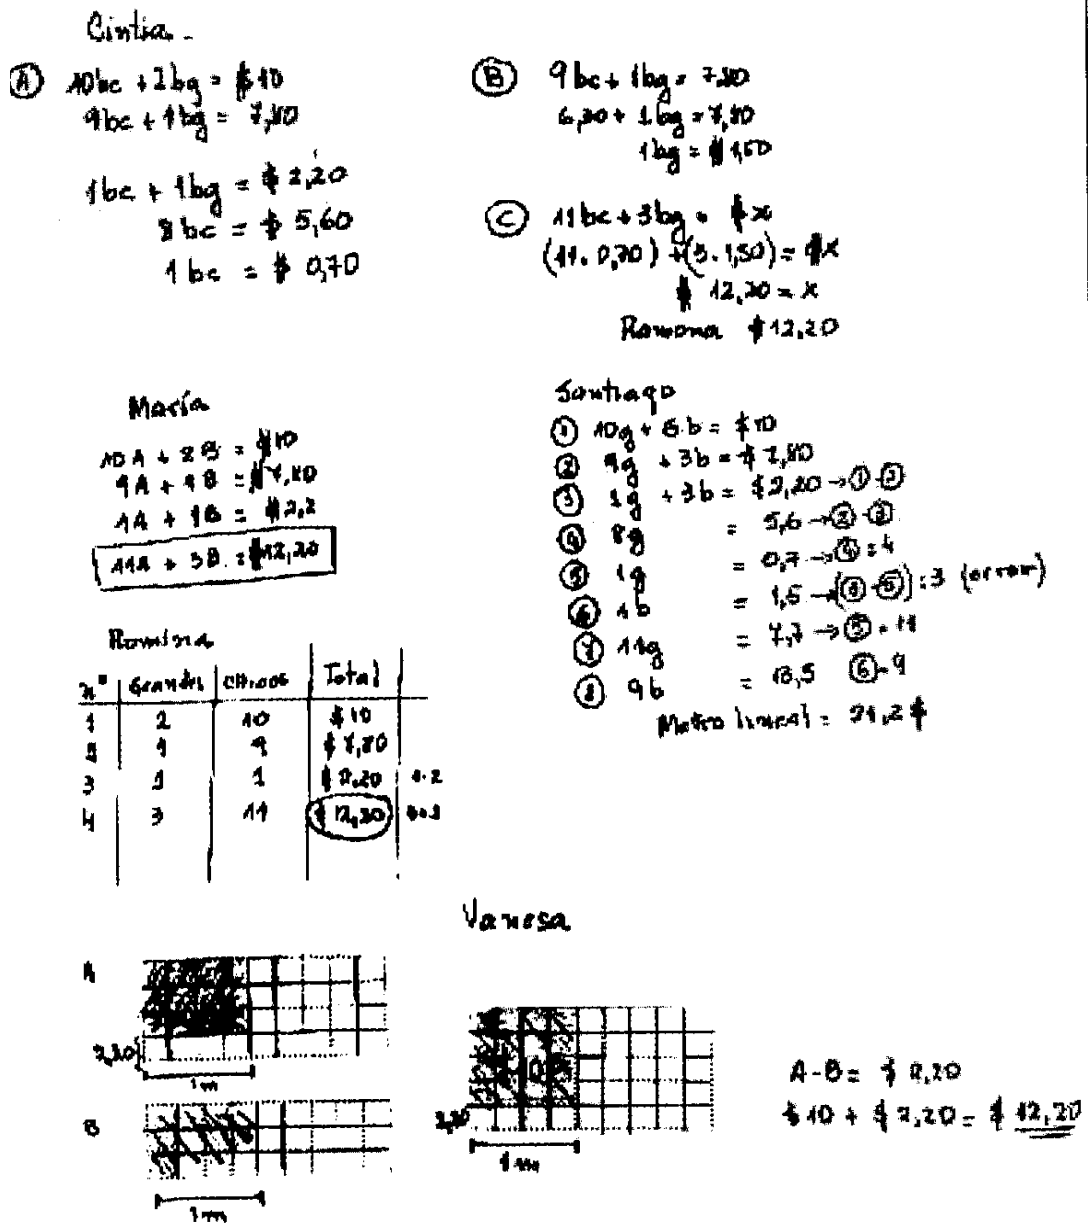 Cintia.-
Ⓐ 10bc + 2bg = $10
9bc + 1bg = 7,80
1bc + 1bg = $ 2,20
8bc = $ 5,60
1bc = $ 0,70
Ⓑ 9bc + 1bg = 7,80
6,30 + 1bg = 7,80
1bg = $ 1,50
Ⓒ 11bc + 3bg = $x
(11. 0,70) + (3. 1,50) = $x
$ 12,20 = x
Ramona $12,20
María
10A + 2B = $10
9A + 1B = $7,80
1A + 1B = $2,2
11A + 3B. = $12,20
Santiago
① 10g + 6.b = $10
② 9g + 3b = $ 7,80
③ 1g + 3b = $2,20 → ①-②
④ 8g = 5,6 → ②-③
⑤ 1g = 0,7 → ④:4
⑥ 1b = 1,5 → (③-⑤):3 (error)
⑦ 11g = 7,7 → ⑤.11
⑧ 9b = 13,5 ⑥.9
Metro lineal = 21,2 $
Romina
n° Grandes Chicos Total
1 2 10 $10
2 1 9 $ 7,80
3 1 1 $ 2,20 1-2
4 3 11 $ 12,20
Vanesa
A
2,20
1m
B
1m
2,20
1m
A-B = $ 2,20
$10 + $ 2,20 = $ 12,20